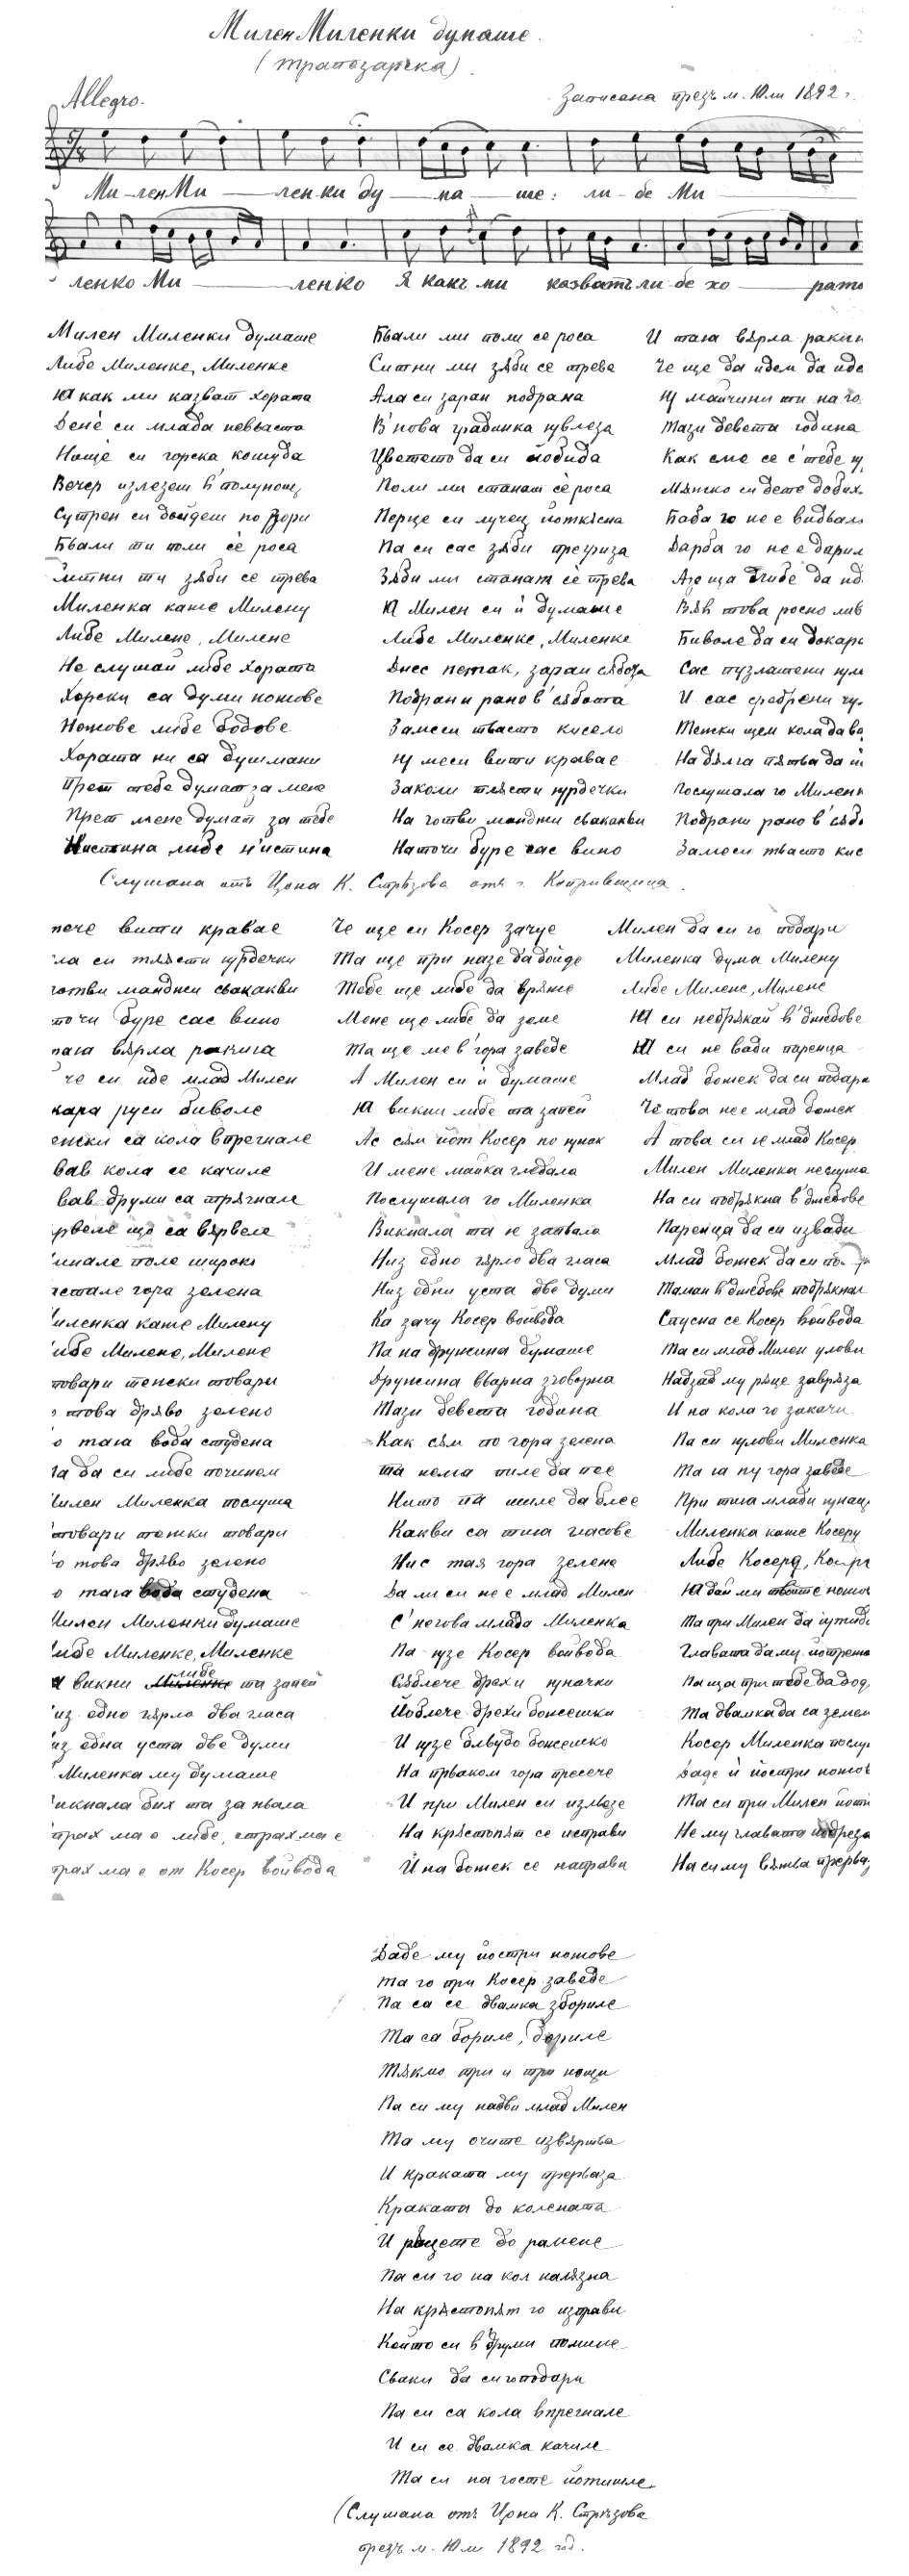 Милен Миленки думаше.
(трапезарска).
Allegro.
Записана презъ м. Юли 1892 г.
Ми-лен Ми — лен-ки ду — ма — ше: ли-бе Ми —
ленко Ми — ленко Я какъ ми казватъ ли-бе хо — рата
Милен Миленки думаше
Либе Миленке, Миленке
Я как ми казват хората
Дене си млада невяста
Ноще си горска кошуда
Вечер излезеш в' полунощ
Сутрен си дойдеш по зори
Бьали ти поли се роса
ситни ти зѫби се трева
Миленка каже Милену
Либе Милене, Милене
Не слушай либе хората
Хорски са думи ножове
Ножове либе бодове
Хората ни са душмани
Прет тебе думат за мене
Прет мене думат за тебе
Истина либе н'истина
Бьали ми поли се роса
Ситни ми зѫби се трева
Ала си заран подрана
В' нова градинка ювлеза
Цветето да си
Поли ми станат се роса
Перце си лучец йоткѫсна
Па си сас зѫби прегриза
Зѫби ми станат се трева
А Милен си ѝ думаше
Либе Миленке, Миленке
Днес петак, заран сѫбота
Подрани рано в' сѫбота
Замеси тьасто кисело
Ю меси вити кравае
Заколи тлѫсти юрдечки
На готви манджи свакакви
Наточи буре сас вино
И тага вѫрла ракия
Че ще да идем да иде
Ю майчини ти на го
Тази девета година
Как сме се с' тебе
Мѫшко си дете добих
Баба го не е видьала
Дарба го не е дарил
Азе ща либе да ид
Вѫв това росно лив
Биволе да си докара
Сас тузлатени
И сас сребрени чу
Тежки щем кола да
На дѫлга пѫтьа да
Послушала го Миленк
Подрани рано в' сѫбо
Замеси тьасто кис
Слушана отъ Цона К. Стрѣзова отъ г. Копривщица.
пече вити кравае
ла си тлѫсти юрдечки
готви манджи свакакви
точи буре сас вино
тага вѫрла ракия
че си иде млад Милен
кара руси биволе
ежки са кола впрегнале
вав кола се качиле
вав друми са трѫгнале
рвеле що са вѫрвеле
инале поле широко
стале гора зелена
иленка каже Милену
ибе Милене, Милене
товари тежки товари
това дрѫво зелено
о тага вода студена
а да си либе починем
илен Миленка послуша
товари тежки товари
о това дрѫво зелено
о тага вода студена
илен Миленки думаше
ибе Миленке, Миленке
Я викни либе та запей
из едно гѫрло два гласа
из една уста две думи
Миленка му думаше
икнала бих та запьала
трах ма е либе, страх ма е
трах ма е от Косер войвода
Че ще си Косер зачуе
Та ще при назе да дойде
Тебе ще либе да врѫже
Мене ще либе да земе
Та ще ме в' гора заведе
А Милен си ѝ думаше
Я викни либе та запей
Ас сѫм йот Косер по юнак
И мене майка гледала
Послушала го Миленка
Викнала та ие запьала
Низ едно гѫрло два гласа
Низ едни уста две думи
Ка зачу Косер войвода
Па на дружина думаше
Дружина вьарна зговорна
Тази девета година
Как сѫм по гора зелена
Та нема пиле да пее
Нито па шиле да блее
Какви са тия гласове
Нис тая гора зелена
Да ли си не е млад Милен
С' негова млада Миленка
Па юзе Косер войвода
Сѫблече дрехи юначки
Йоблече дрехи божешки
И юзе
На прьаком гора пресече
И при Милен си изльазе
На крѫстопѫт се исправи
И на божек се направи
Милен да си го подари
Миленка дума Милену
Либе Милене, Милене
Я си небрѫкай в' джебове
Я си не вади паренца
Млад божек да си подари
Че това не е млад божек
А това си ие млад Косер
Милен Миленка неслуша
На си подбрѫкна в' джебове
Паренца да си извади
Млад божек да си по
Таман в' джебове подбрѫкнал
Спусна се Косер войвода
Та си млад Милен улови
Надзад му рѫце завръза
И на кола го закачи
Па си юлови Миленка
Та ia ну гора заведе
При тиia млади юнаци
Миленка каже Косеру
Либе Косере, Косере
Я дай ми твоите ножов
Та при Милен да йтиде
Главата да му йотрежа
Па ща при тебе да дод
Та двамка да са земем
Косер Миленка послу
Даде ѝ йостри ножов
Та си при Милен йоти
Не му главата йодреза
На си му вѫжьа преряза
Даде му йостри ножове
Та го при Косер заведе
Па са се двамка збориле
Та са бориле, бориле
Тѫкмо три и три нощи
Па си му надви млад Милен
Та му очите извѫртьа
И краката му прерьаза
Краката до колената
И рѫцете до рамене
Па си го на кол налѫзна
На крѫстопѫт го изправи
Който си в' друми помине
Сваки да си го подари
Па си са кола впрегнале
И си се двамка качиле
Та си на госте йотишле.
(Слушана отъ Цона К. Стрѣзова
презъ м. Юли 1892 год.